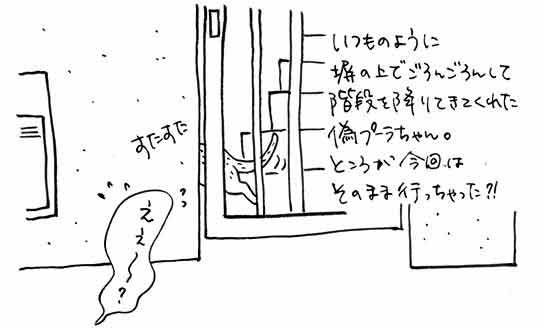 いつものように
塀の上でごろんごろんして
階段を降りてきてくれた
偽プーラちゃん。
ところが今回は
そのまま行っちゃった?!
すたすた
??
え
え
〜
?